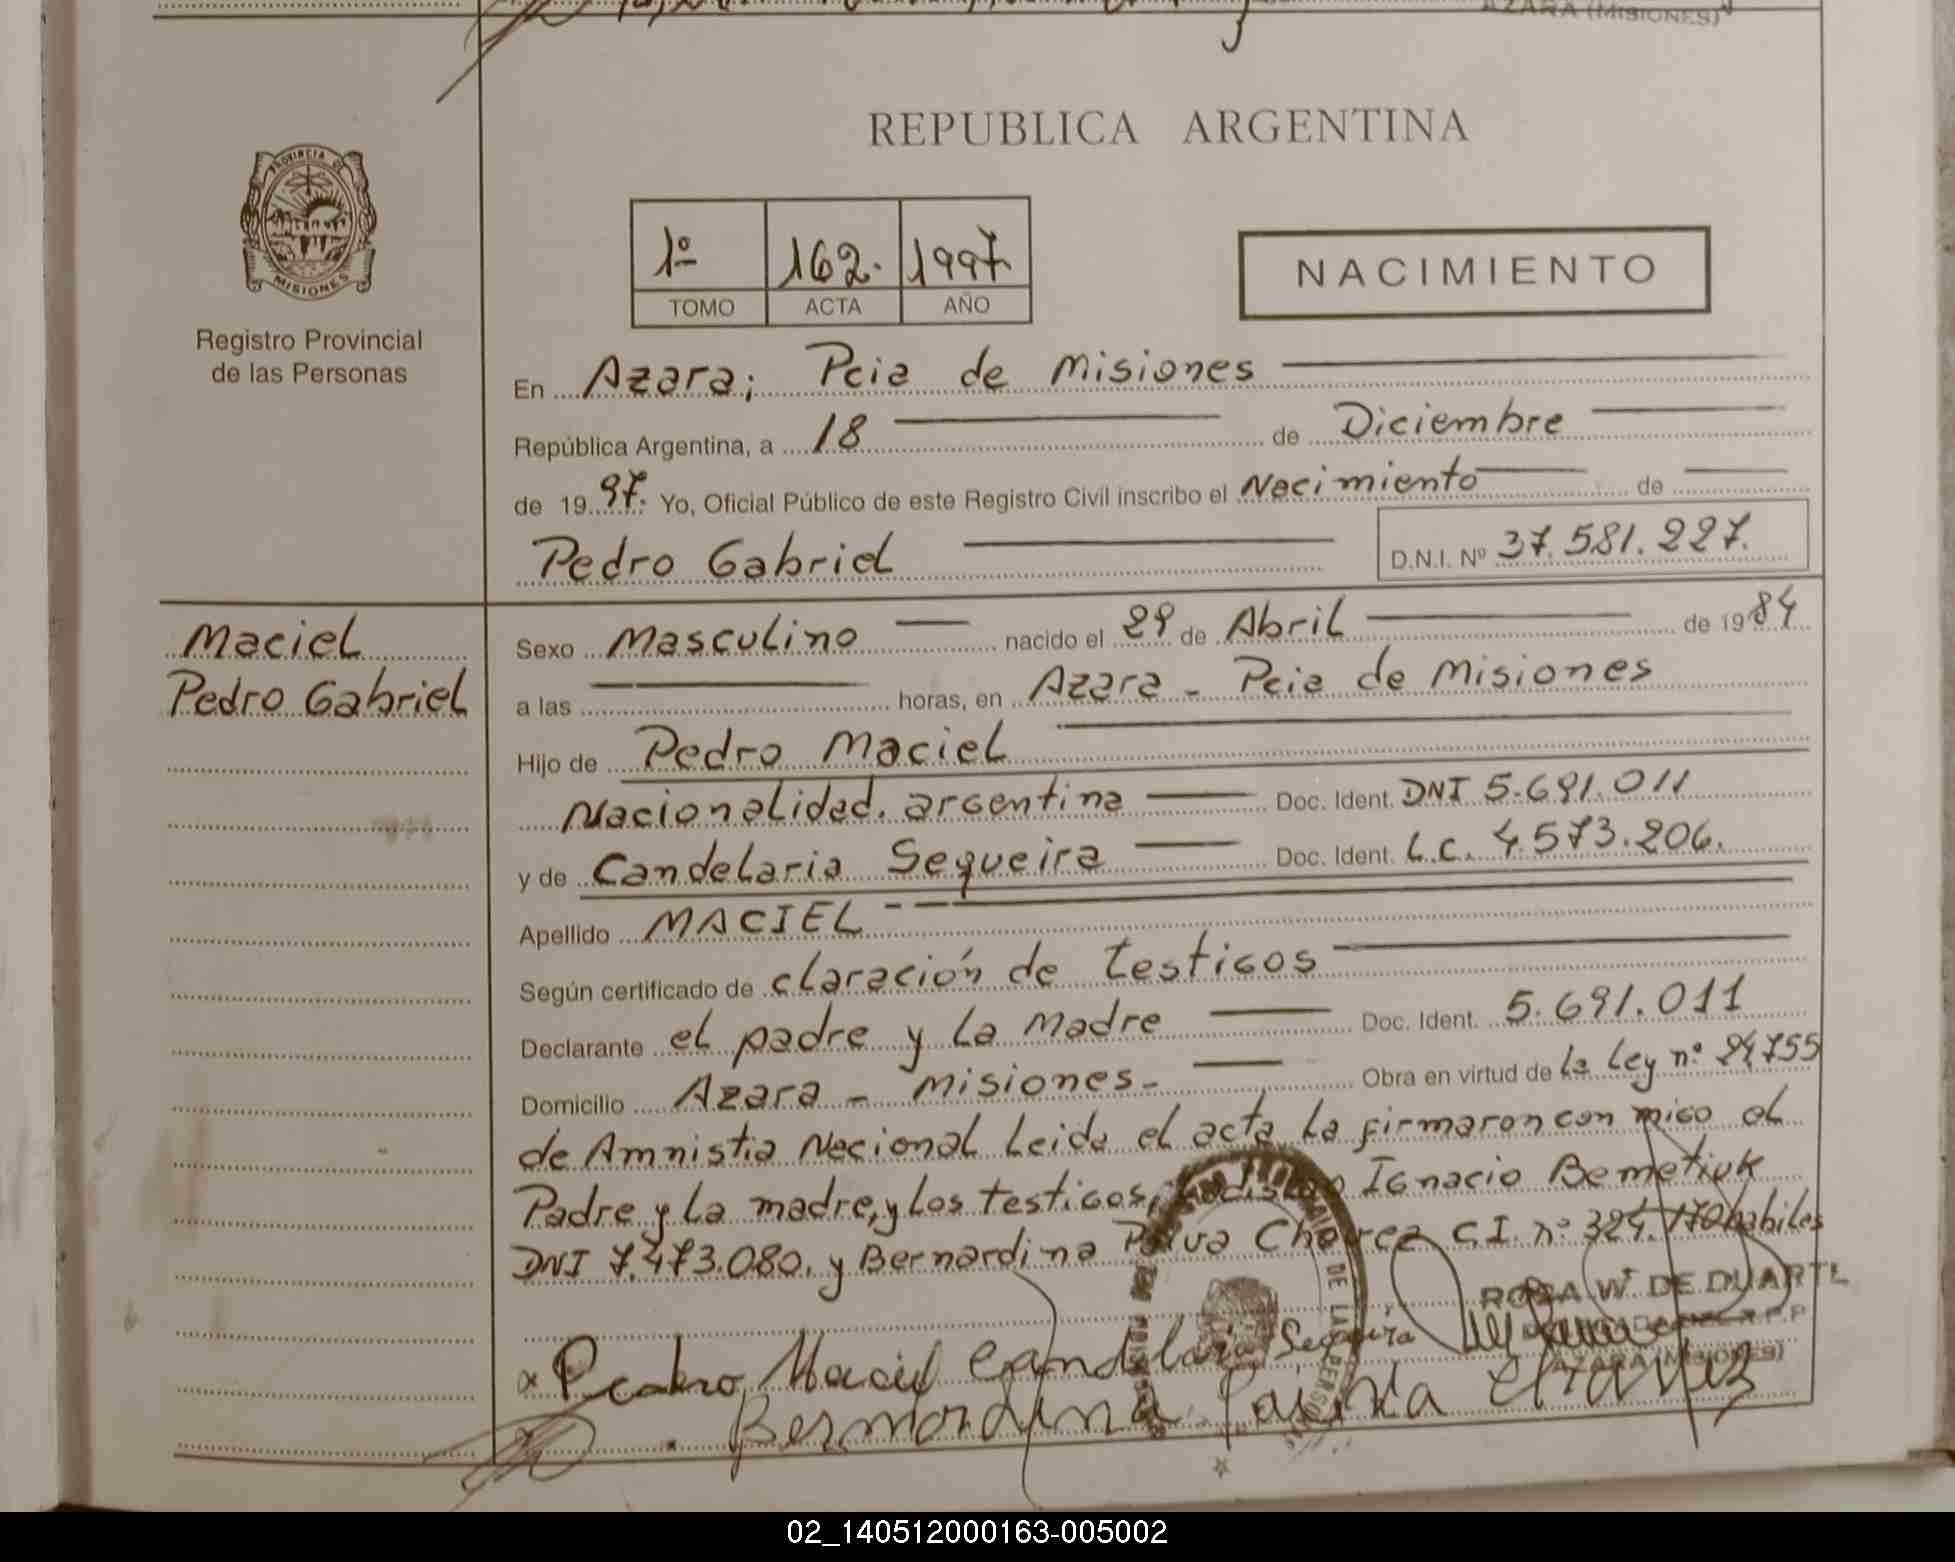 AZARA (MISIONES)
REPUBLICA ARGENTINA
PROVINCIA DE
MISIONES
Registro Provincial
de las Personas
1º 162. 1997
TOMO ACTA AÑO
NACIMIENTO
En Azara; Pcia de Misiones
República Argentina, a 18 de Diciembre
de 19 97. Yo, Oficial Público de este Registro Civil inscribo el Nacimiento de
Pedro Gabriel D.N.I. Nº 37.581.227.
Maciel
Pedro Gabriel
Sexo Masculino nacido el 29 de Abril de 19 84
a las horas, en Azara - Pcia de Misiones
Hijo de Pedro Maciel
Nacionalidad. argentina Doc. Ident. DNI 5.691.011
y de Candelaria Sequeira Doc. Ident. L.C. 4.573.206.
Apellido MACIEL
Según certificado de claración de testigos
Declarante el padre y la madre Doc. Ident. 5.691.011
Domicilio Azara - Misiones- Obra en virtud de la Ley nº 24755
de Amnistia Nacional Leida el acta la firmaron con migo el
Padre y la madre, y los testigos, Ignacio Bemetiuk
DNI 7.473.080. y Bernardina C.I. nº 324.170 habiles
ROSA W. DE DUARTE
AZARA (MISIONES)
Pedro Maciel Candelaria Sequeira
Bernardina
02_140512000163-005002